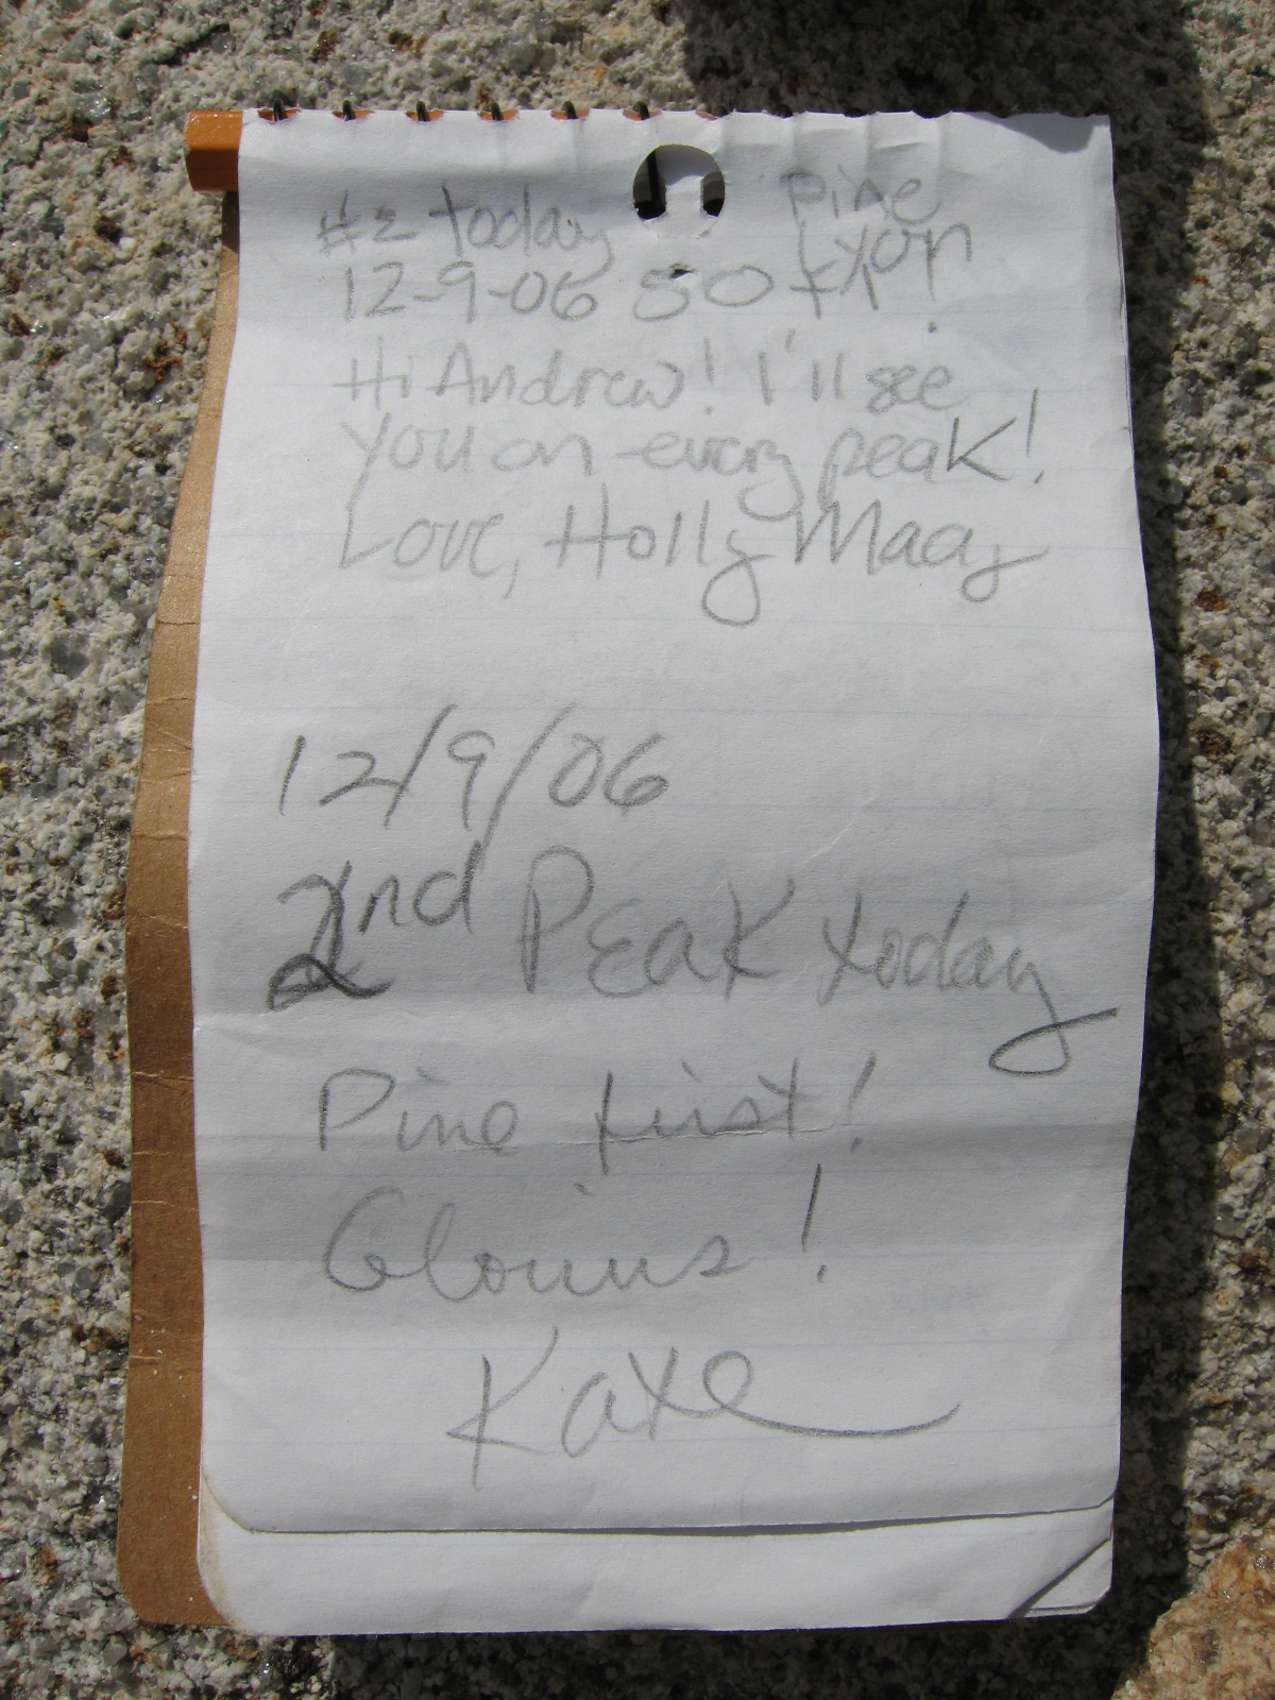 #2 today Pine
12-9-06 50 Lyon!
Hi Andrew! I'll see
you on every peak!
Love, Holly
12/9/06
2nd Peak today
Pine first!
Kate